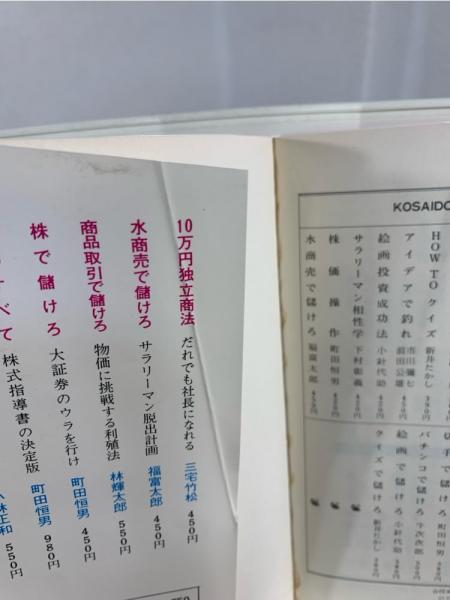 10万円独立商法 だれでも社長になれる 三宅竹松 450円
水商売で儲けろ サラリーマン脱出計画 福富太郎 450円
商品取引で儲けろ 物価に挑戦する利殖法 林輝太郎 550円
株で儲けろ 大証券のウラを行け 町田恒男 450円
すべて 株式指導書の決定版 町田恒男 980円
林正和 550円
KOSAIDO
HOW TO クイズ 新井たかし 390円
アイデアで釣れ 市川彌七 前田公雄
絵画投資成功法 小針代助
サラリーマン相性学 下村彰義 450円
株価操作 町田恒男 450円
水商売で儲けろ 福富太郎 450円
町田恒男
パチンコで儲けろ 牛次次郎
絵画で儲けろ 小針代助
クイズで儲けろ 新井たかし 380円